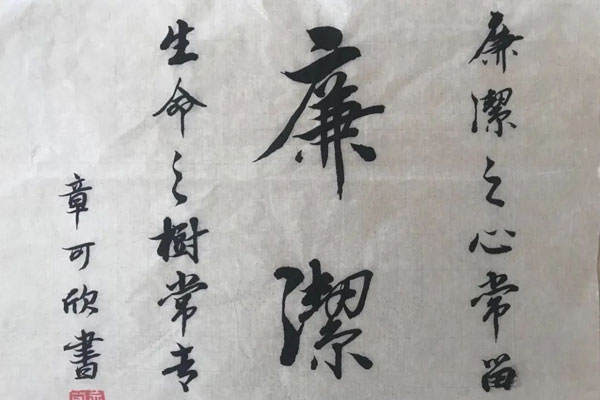 廉潔之心常留
廉潔
生命之樹常青
章可欣書